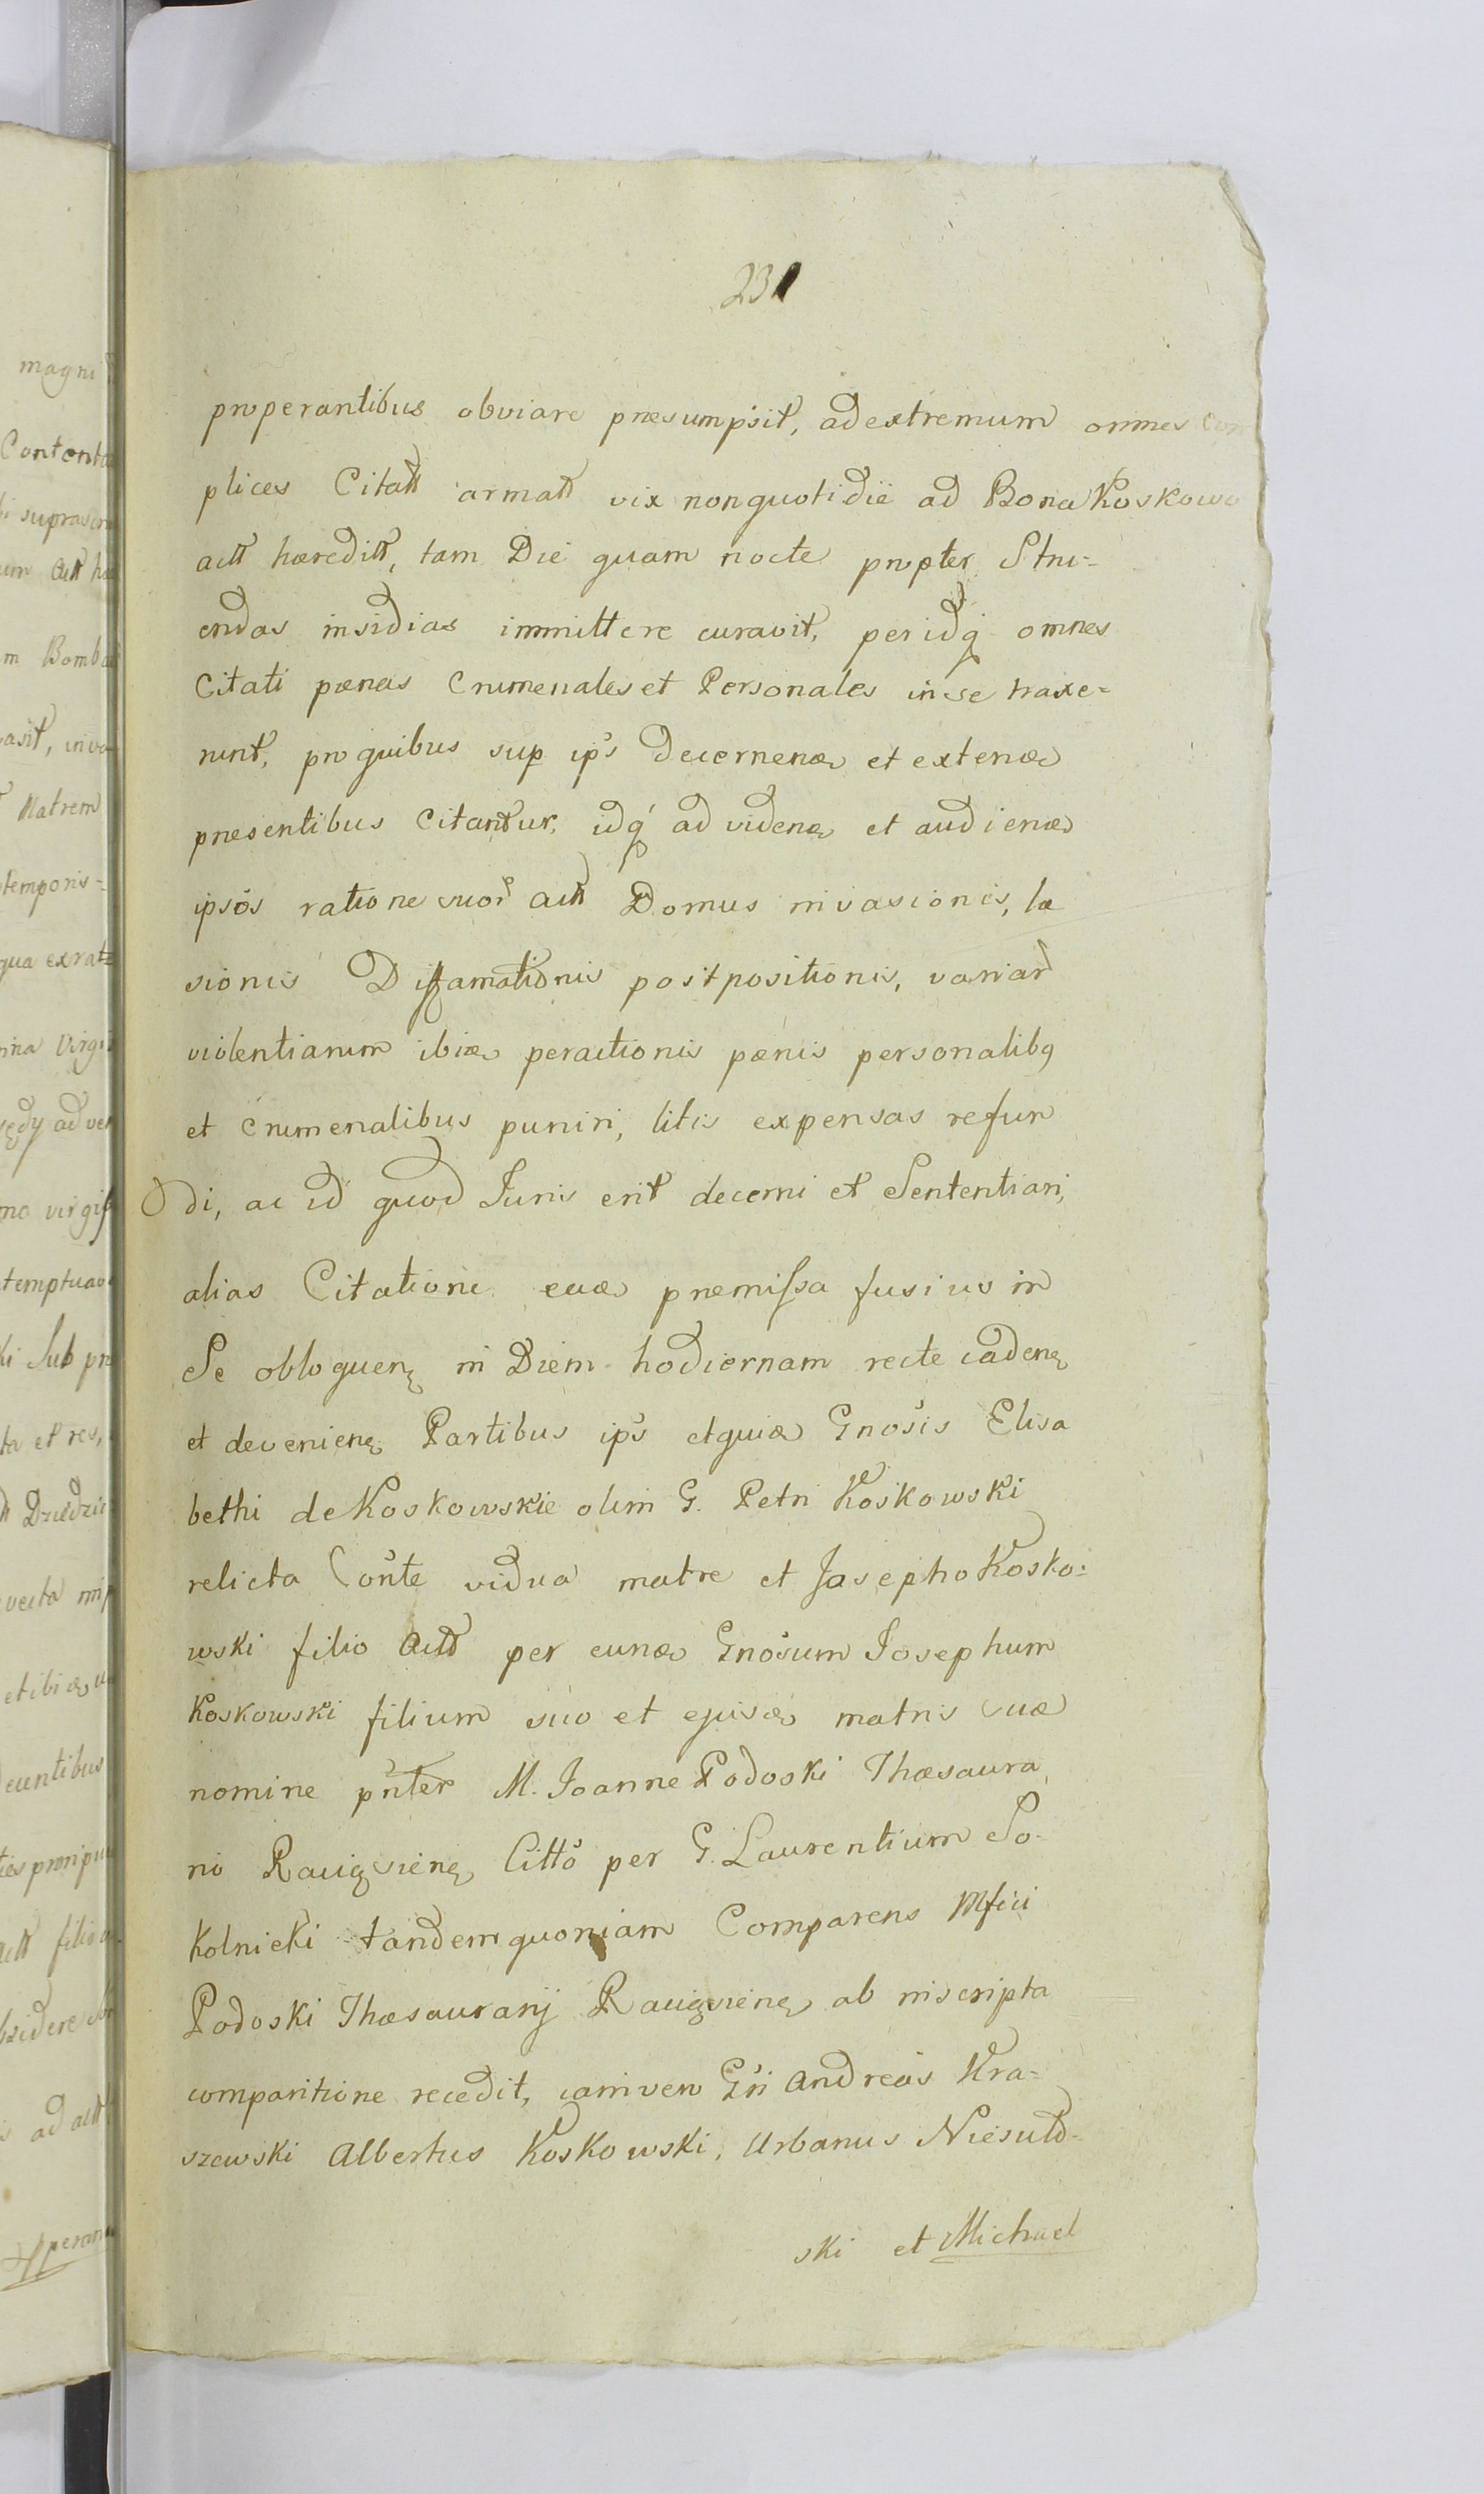 231
properantibus obviare præsumpsit, ad extremum omnes com
plices Citatt armatt vix non quotidie ad Bona Koskowo
actt hæreditt, tam Die quam nocte propter Stru-
endas insidias immittere curavit, per idq omnes
Citati pænas Crumenales et Personales in se traxe-
runt, pro quibus sup ips decernenæ et extenæ
præsentibus Citantur, idq ad videnę et audienæ
ipsos ratione suor actt Domus invasionis, læ
sionis Diffamationis postpositionis, variar
violentiarum ibiæ peractionis pænis personalibq
et crumenalibus puniri, litis expensas refun
di, ac id quod Juris erit decerni et Sententiari,
alias Citatione eaæ præmissa fusius in
Se obloquenę in Diem hodiernam recte cadenę
et devenienę Partibus ips et quiæ Gnosis Elisa
bethi de Koskowskie olim G. Petri Koskowski
relicta Conte vidua matre et Josepho Kosko-
wski filio Actt per eunæ Gnosum Josephum
Koskowski filium suo et ejusæ matris suæ
nomine pnter M. Joanne Podoski Thæsaura
rio Ravię sienę Citto per G. Laurentium So-
kolnicki tandem quoniam Comparens Mfici
Podoski Thæsaurarij Ravięsienę ab inscripta
comparitione recedit, jam vero Gsi Andreas Kra-
szewski Albertus Koskowski, Urbanus Niesułd-
ski et Michael
magni
Contenta
m Bomba
Matrem
temporis-
Sub
ta et res,
euntibus